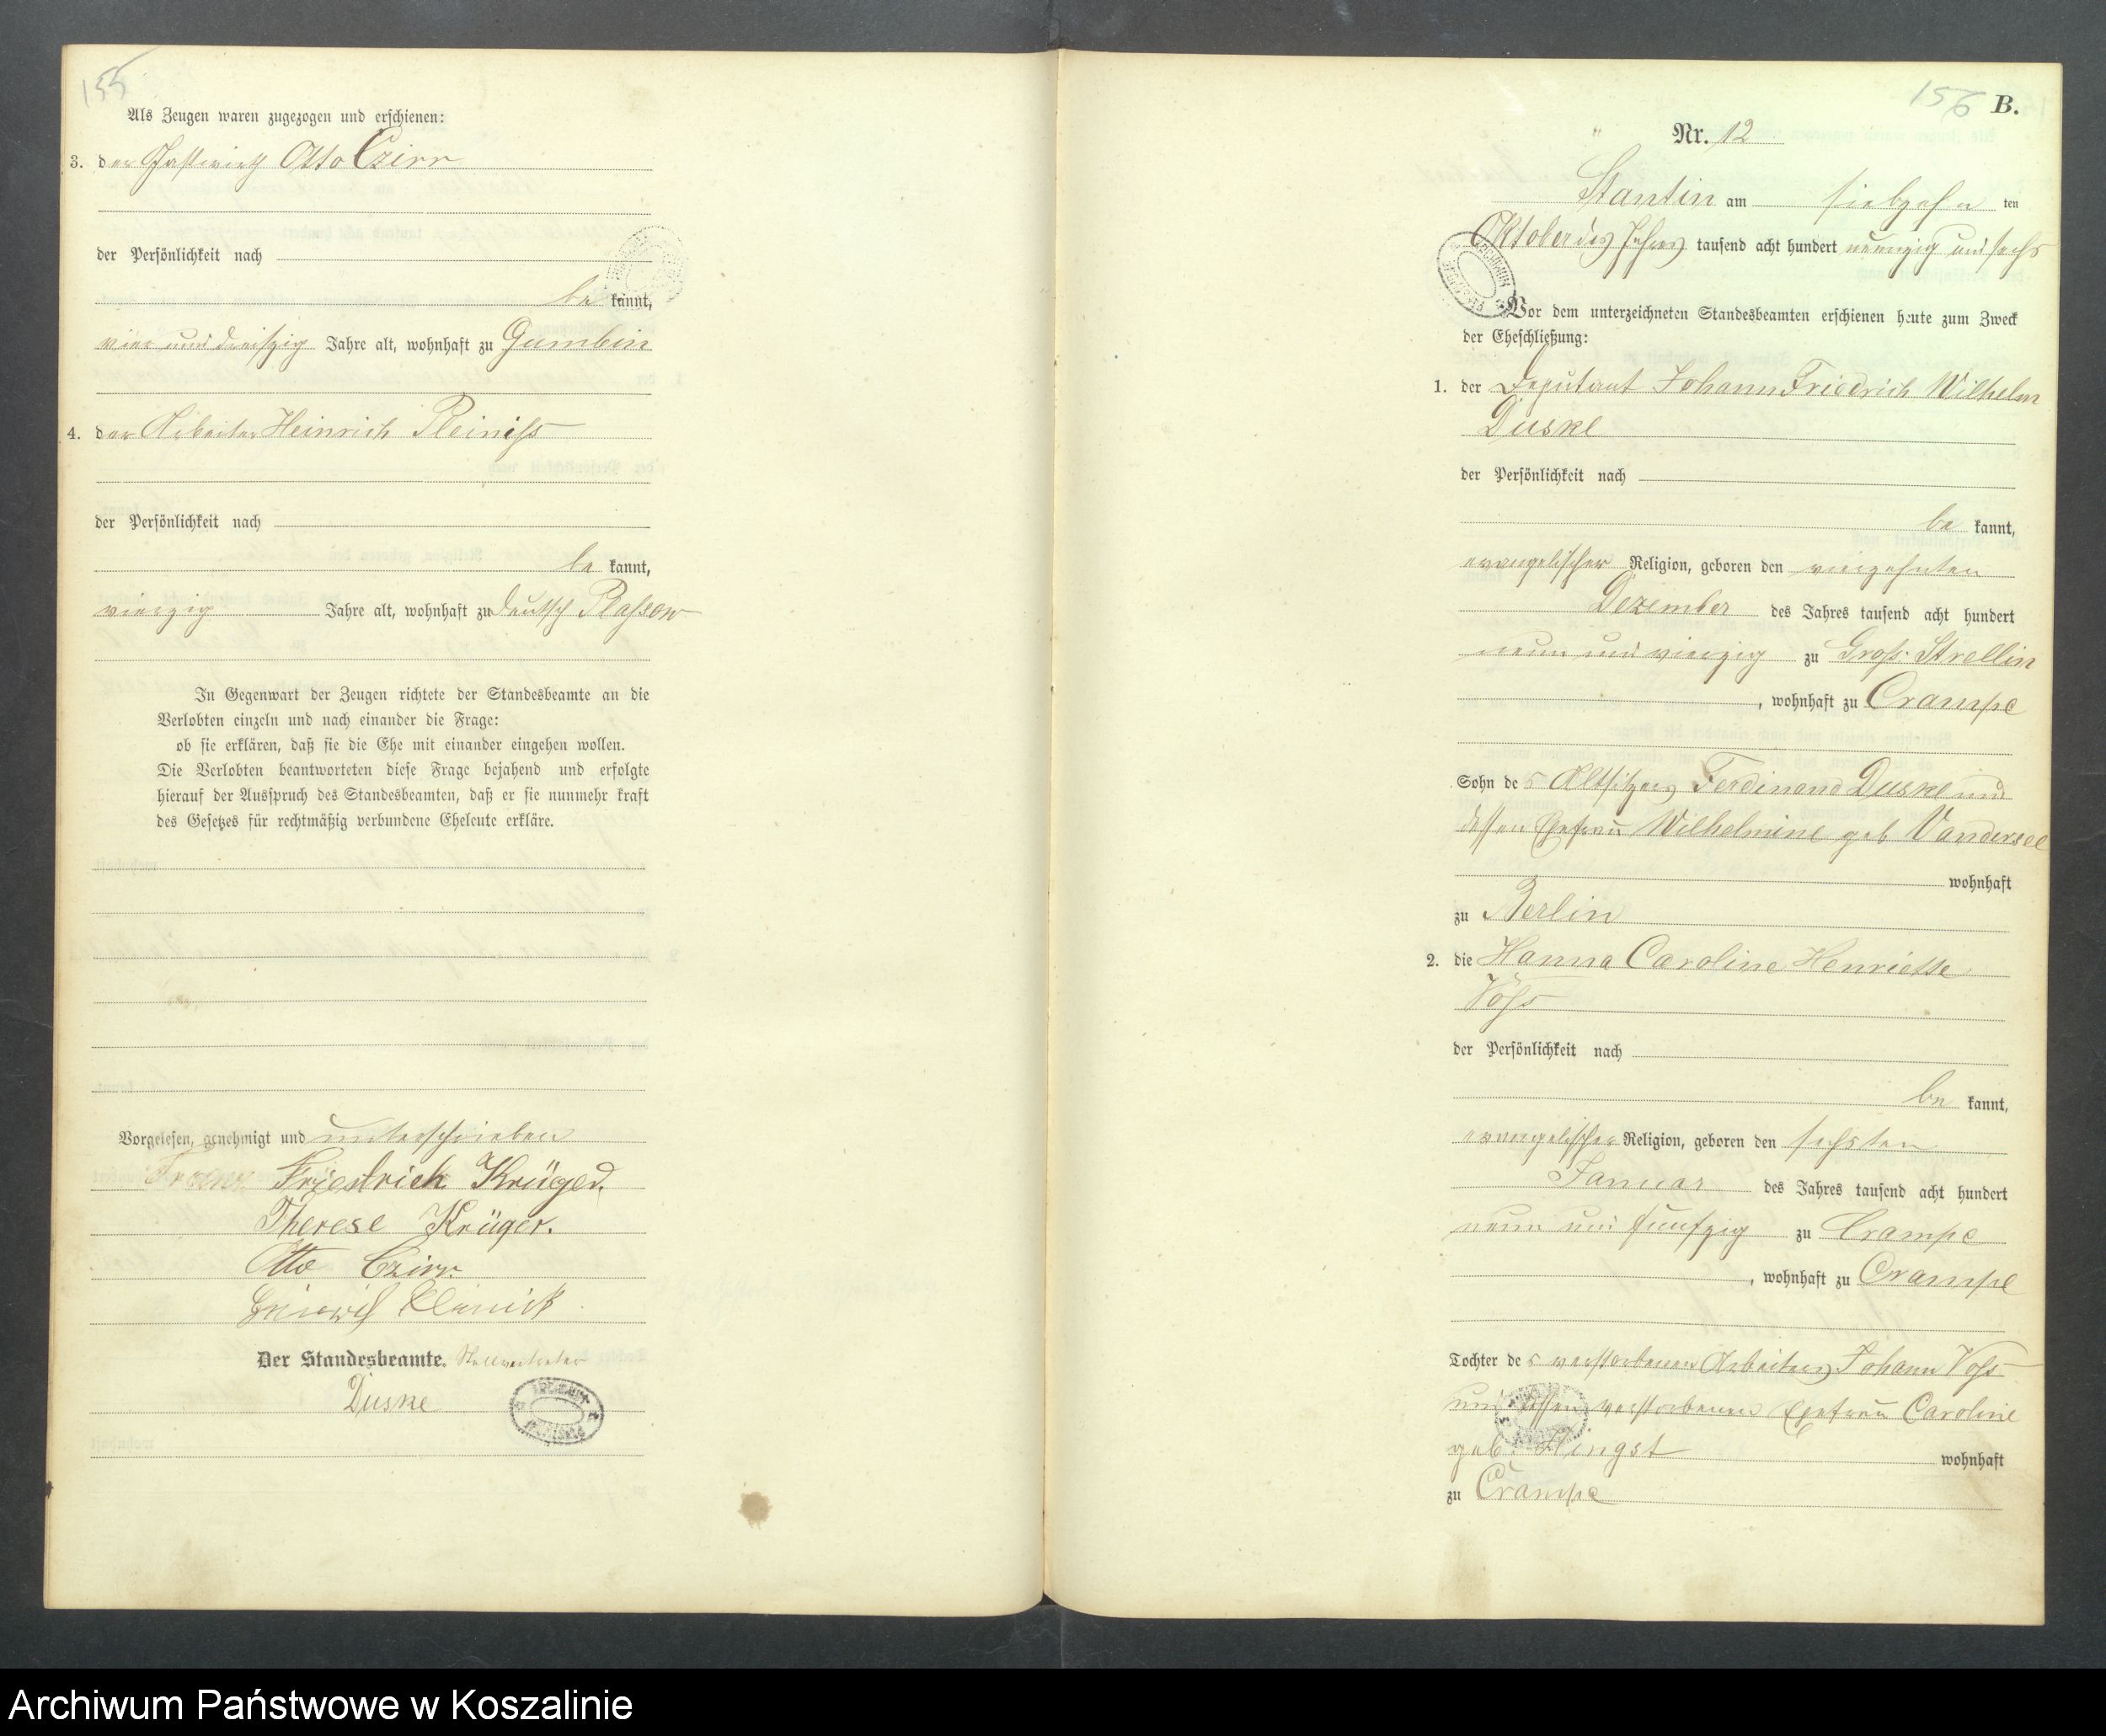 155
Als Zeugen waren zugezogen und erschienen:
3. der Gastwirth Otto Czirr
der Persönlichkeit nach
be kannt,
vier und dreißig Jahre alt, wohnhaft zu Gumbin
4. der Arbeiter Heinrich Kleiniß
der Persönlichkeit nach
be kannt,
vierzig Jahre alt, wohnhaft zu Deutsch Plassow
In Gegenwart der Zeugen richtete der Standesbeamte an die
Verlobten einzeln und nach einander die Frage:
ob sie erklären, daß sie die Ehe mit einander eingehen wollen.
Die Verlobten beantworteten diese Frage bejahend und erfolgte
hierauf der Ausspruch des Standesbeamten, daß er sie nunmehr kraft
des Gesetzes für rechtmäßig verbundene Eheleute erkläre.
Vorgelesen, genehmigt und unterschrieben
Friedrich Krüger.
Therese Krüger.
Otto Czirr.
Heinrich
Der Standesbeamte. Stellvertreter
Duske
156 B.
Nr. 12
Stantin am siebzehn ten
Oktober des Jahres tausend acht hundert neunzig und sechs
Vor dem unterzeichneten Standesbeamten erschienen heute zum Zweck
der Eheschließung:
1. der Deputant Johann Friedrich Wilhelm
Duske
der Persönlichkeit nach
be kannt,
evangelischer Religion, geboren den vierzehnten
Dezember des Jahres tausend acht hundert
neun und vierzig zu Groß Strellin
, wohnhaft zu Crampe
Sohn des Altsitzers Ferdinand Duske und
dessen Ehefrau Wilhelmine geb Vandersee
wohnhaft
zu Berlin
2. die Hanna Caroline Henriette
Voß
der Persönlichkeit nach
be kannt,
evangelischer Religion, geboren den sechsten
Januar des Jahres tausend acht hundert
neun und fünfzig zu Crampe
, wohnhaft zu Crampe
Tochter des verstorbenen Arbeiters Johann Voß
und dessen verstorbenen Ehefrau Caroline
geb. Hingst wohnhaft
zu Crampe
Archiwum Państwowe w Koszalinie